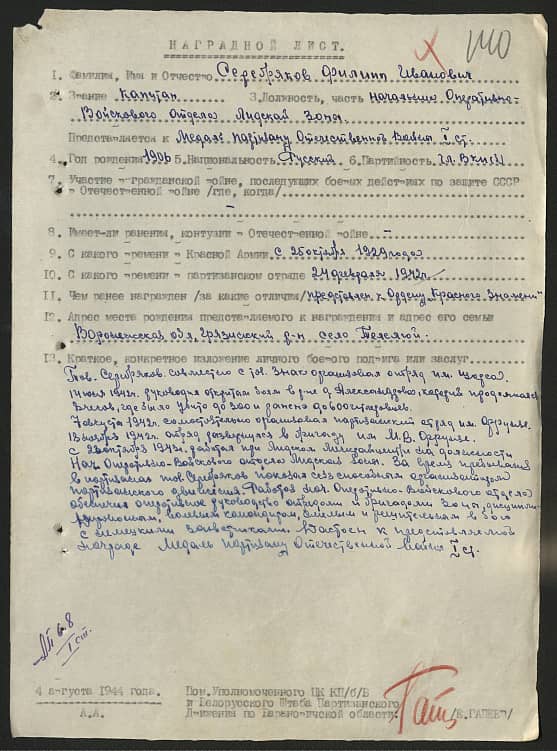 140
НАГРАДНОЙ ЛИСТ.
1. Фамилия, Имя и Отчество Серебряков Филипп Иванович
2. Звание Капитан 3. Должность, часть начальник Оперативно-
Войскового Отдела Лидской Зоны
Представляется к Медаль партизану Отечественной Войны I ст.
4. Год рождения 1906 5. Национальность Русский 6. Партийность чл. ВКП(б)
7. Участие в гражданской войне, последующих боевых действиях по защите СССР
и Отечественной войне /где, когда/
-
8. Имеет-ли ранения, контузии в Отечественной войне -
9. С какого времени в Красной Армии с 25 октября 1929 года
10. С какого времени в партизанском отряде 24 февраля 1942 г.
11. Чем ранее награжден /за какие отличия/ представлен к Ордену "Красного Знамени"
12. Адрес места рождения представляемого к награждения и адрес его семьи
Воронежская обл, Грязинский р-н село Телелюй.
13. Краткое, конкретное изложение личного боевого подвига или заслуг
Тов. Серебряков совместно с тов. организовал отряд им. Щорса.
14 июня 1942г. руководил открытым боем в р-не д. Александрово, который продолжался
где было убито до 300 и ранено до 600 гитлеровцев.
7 августа 1942г. самостоятельно организовал партизанский отряд им. Фрунзе.
13 ноября 1942г. отряд развернулся в бригаду им М.В. Фрунзе.
С 1943г. работая при Лидском Межрайцентре на должности
Нач. Оперативно-Войскового отдела Лидской зоны. За время пребывания
в партизанах тов Серебряков показал себя способным организатором
партизанского движения. Работая нач. Оперативно-Войскового отдела
обеспечил оперативное руководство отрядами и бригадами зоны, дисципли-
волевой командир, смелый и решительный в бою
с немецкими захватчиками. Достоен к представляемой
награде Медаль партизану Отечественной Войны I ст.
I ст.
4 августа 1944 года.
А.А.
Пом. Уполномоченного ЦК КП/б/Б
и Белорусского Штаба Партизанского
Движения по Барановичской области: